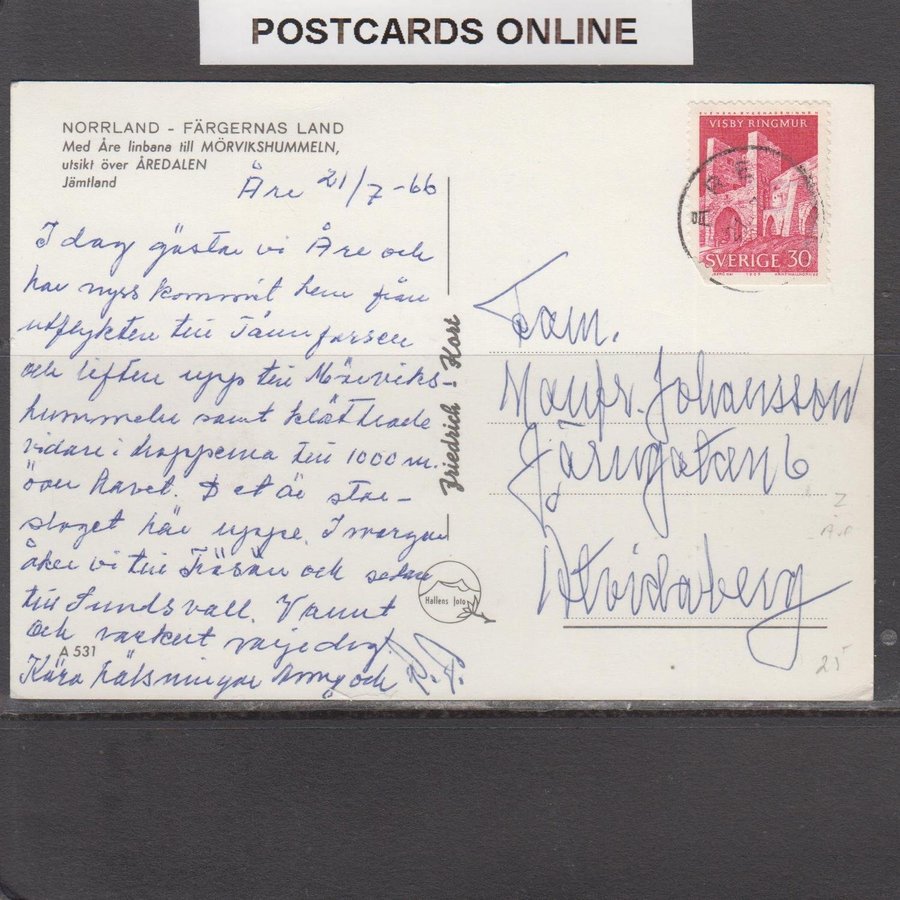 POSTCARDS ONLINE
NORRLAND - FÄRGERNAS LAND
Med Åre linbana till MÖRVIKSHUMMELN,
utsikt över ÅREDALEN
Jämtland
Åre 21/7-66
I dag gästar vi Åre och
har nyss kommit hem från
utflykten till Tännforsen
och liften upp till Mörviks-
hummeln samt klättrade
vidare i trapporna till 1000 m.
över havet. Det är stor-
slaget här uppe. I morgon
åker vi till Frösön och sedan
till Sundsvall. Varmt
och vackert varje dag.
Kära hälsningar och
A 531
Friedrich - Kort
Hallens foto
VISBY RINGMUR
SVERIGE 30
ÅRE
Fam.
Manfr. Johansson
Järngatan 6
Åtvidaberg
25